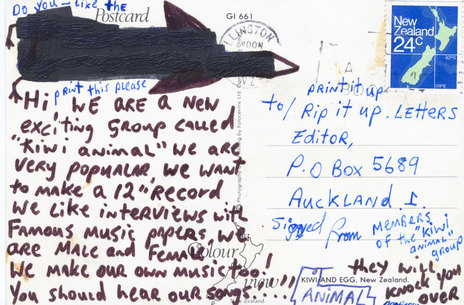 Do you - like the
Postcard
GI 661
print this please
Hi, we are a new
exciting group called
"Kiwi animal" we are
very popular, we want
to make a 12" Record
we like interviews with
famous music papers, we
are male and female
we make our own music too!
You should hear our songs....!!!
LLINGTON
NOON
N.Z.
New
Zealand
24c
print it up
to/ Rip it up. Letters
Editor,
P.O Box 5689
Auckland 1.
Signed from members
of the "Kiwi
animal"
group
Colour
view
KIWI AND EGG, New Zealand.
ANIMAL
they will
knock you
over